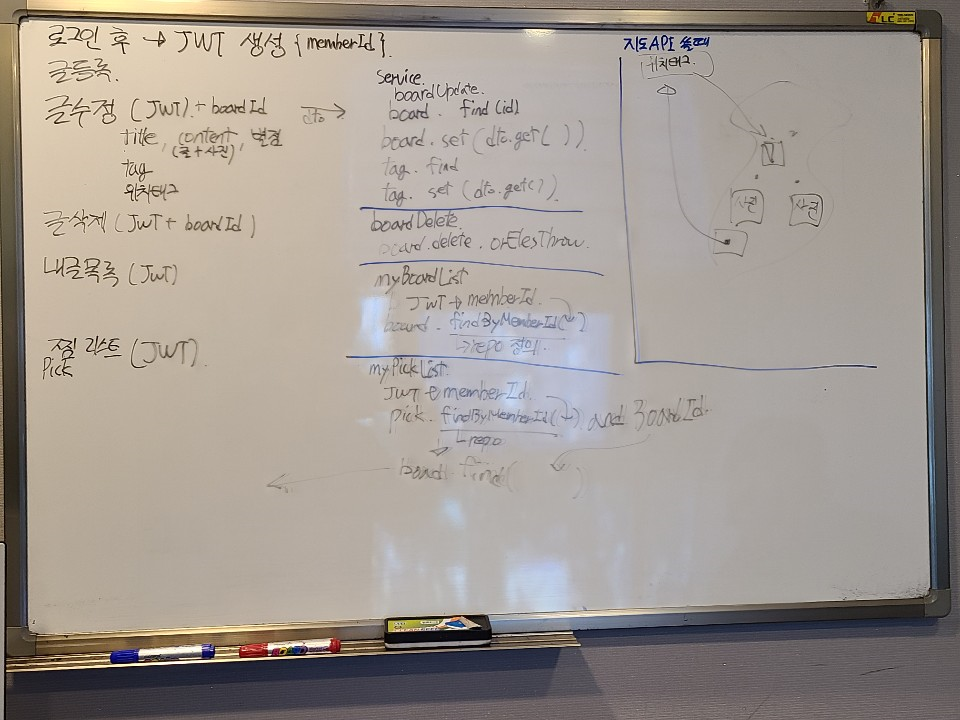 로그인 후 → JWT 생성 {memberId}
글등록.
글수정 (JWT) + boardId
title, content, 별점
(글+사진)
tag
위치태그
글삭제 (JWT + boardId)
내글목록 (JWT)
찜 리스트 (JWT).
Pick
dto →
Service.
boardUpdate.
board. find(id)
board.set(dto.get( )).
tag. find
tag. set (dto.get()).
boardDelete.
board.delete. orElesThrow.
myBoardList
JWT → memberId.
board. findByMemberId( )
↳repo 정의.
myPickList.
JWT memberId.
pick. findByMemberId( ) and BoardId.
↳repo
board. find( )
지도API 쓸때
위치태그
사진
사진